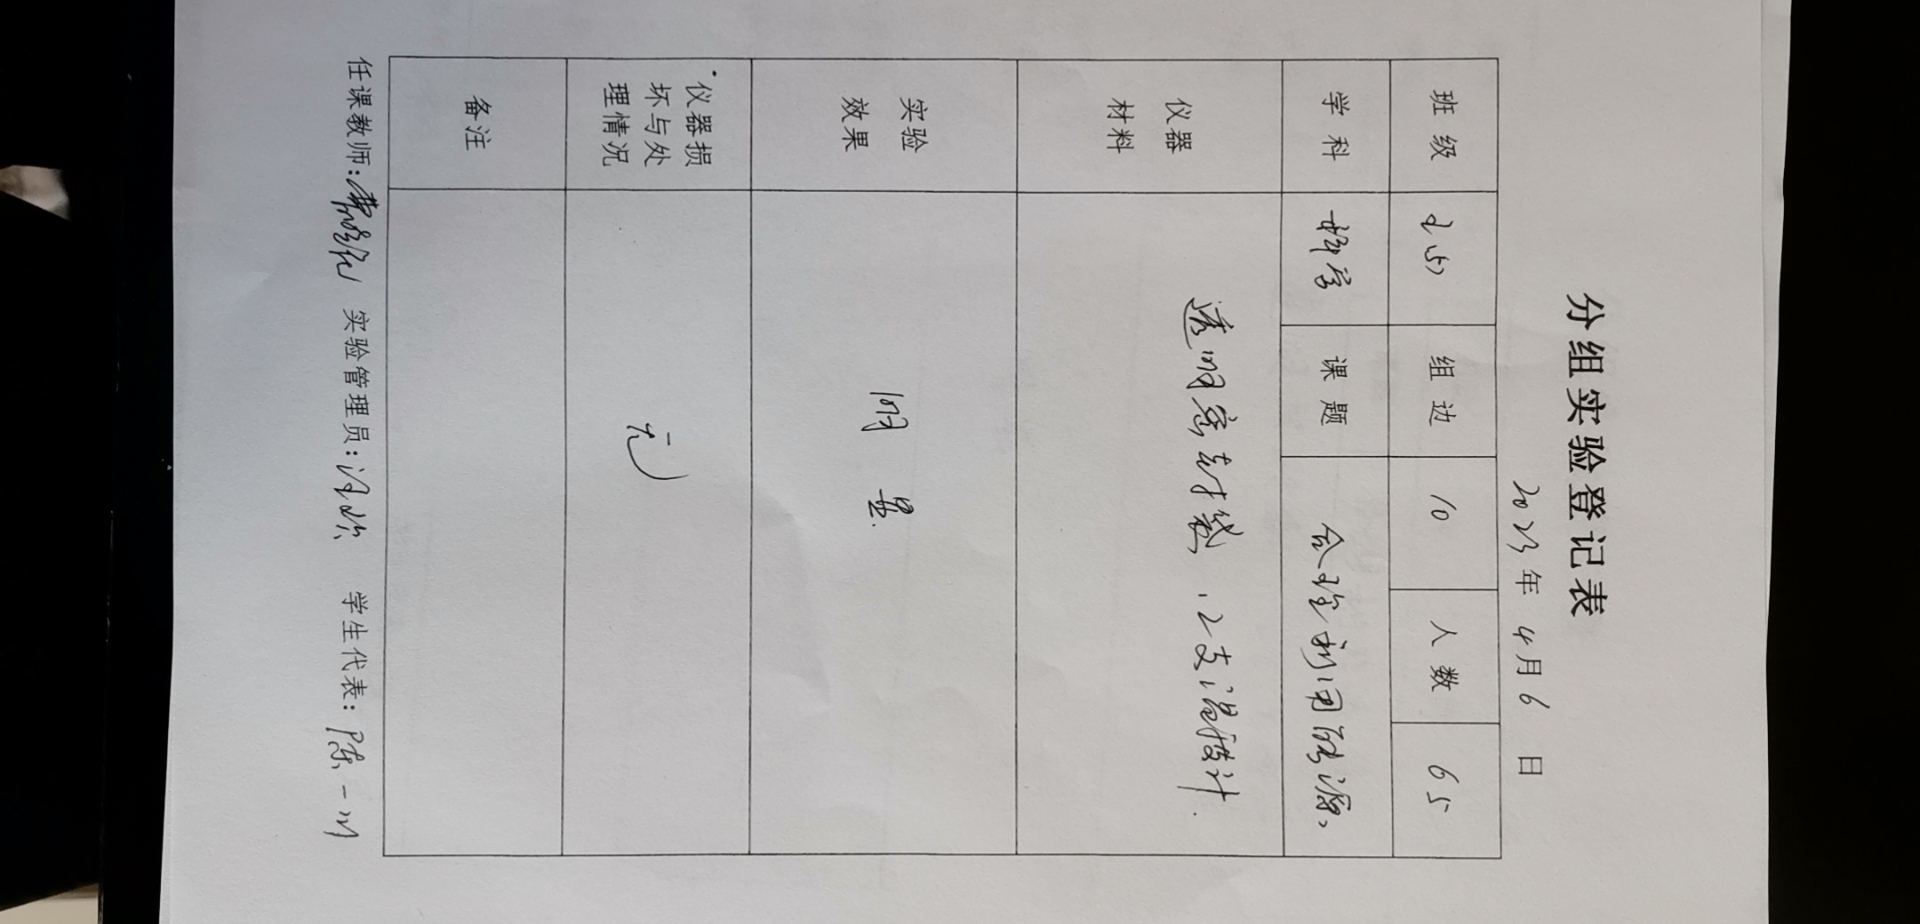 分组实验登记表
2023年 4月 6 日
班 级 组 边 10 人 数 65
学 科 科学 课 题 合理利用能源
仪器 材料 透明密封袋、2支温度计.
实验 效果 明 显.
仪器损 坏与处 理情况 无
备 注
任课教师: 实验管理员: 学生代表: 陈一川